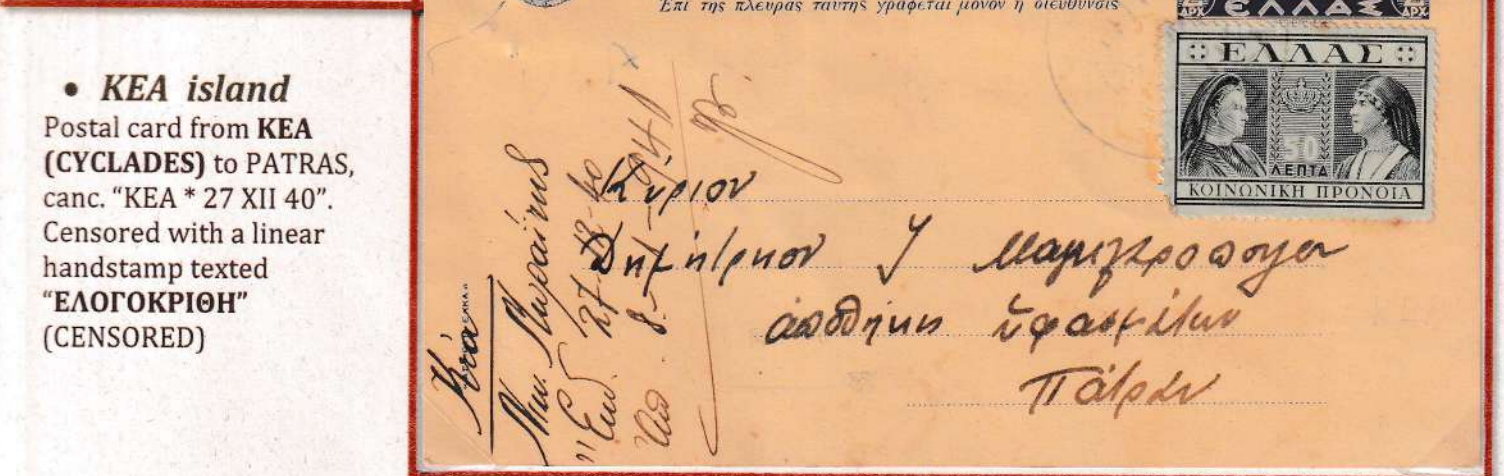 • KEA island
Postal card from KEA
(CYCLADES) to PATRAS,
canc. "KEA * 27 XII 40".
Censored with a linear
handstamp texted
"ΕΛΟΓΟΚΡΙΘΗ"
(CENSORED)
Ἐπὶ τῆς πλευρᾶς ταύτης γράφεται μόνον ἡ διεύθυνσις
ΔΡΧ ΕΛΛΑΣ ΔΡΧ
ΕΛΛΑΣ
50
ΛΕΠΤΑ
ΚΟΙΝΩΝΙΚΗ ΠΡΟΝΟΙΑ
Κύριον
Δημήτριον
ἀποθήκη ὑφασμάτων
Πάτραν
Κέα
27-12-40
8-